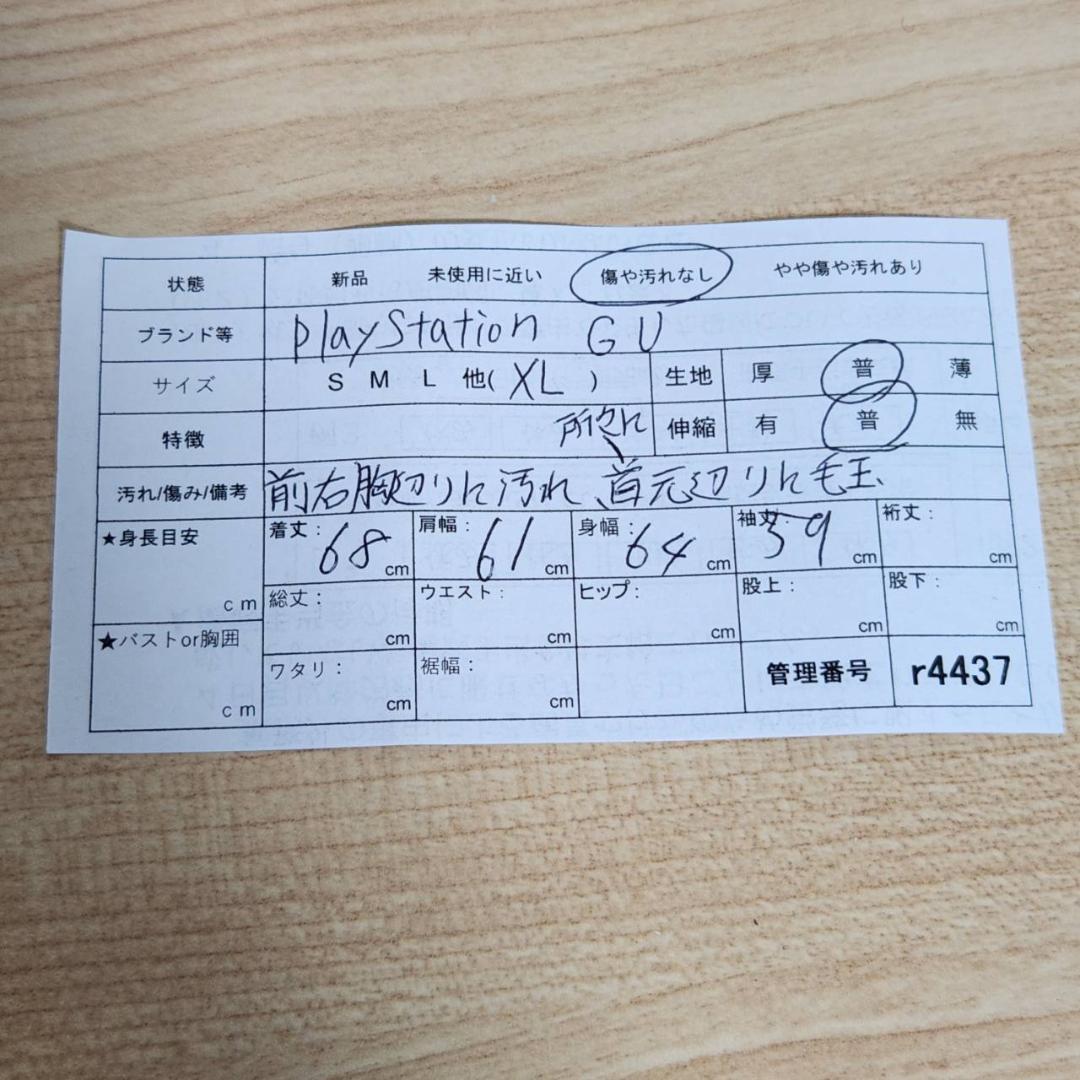 状態 新品 未使用に近い 傷や汚れなし やや傷や汚れあり
ブランド等 playstation GU
サイズ S M L 他( XL ) 生地 厚 普 薄
特徴 伸縮 有 普 無
所々に
汚れ/傷み/備考 前右胸辺りに汚れ、首元辺りに毛玉、
★身長目安 cm
着丈: 68 cm 肩幅: 61 cm 身幅: 64 cm 袖丈: 59 cm 裄丈: cm
総丈: cm ウエスト: cm ヒップ: cm 股上: cm 股下: cm
★バストor胸囲 cm
ワタリ: cm 裾幅: cm 管理番号 r4437